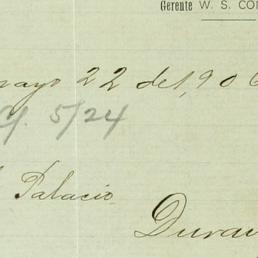 Gerente W. S. CO
mayo 22 de 1,906
5/24
Palacio
Duran